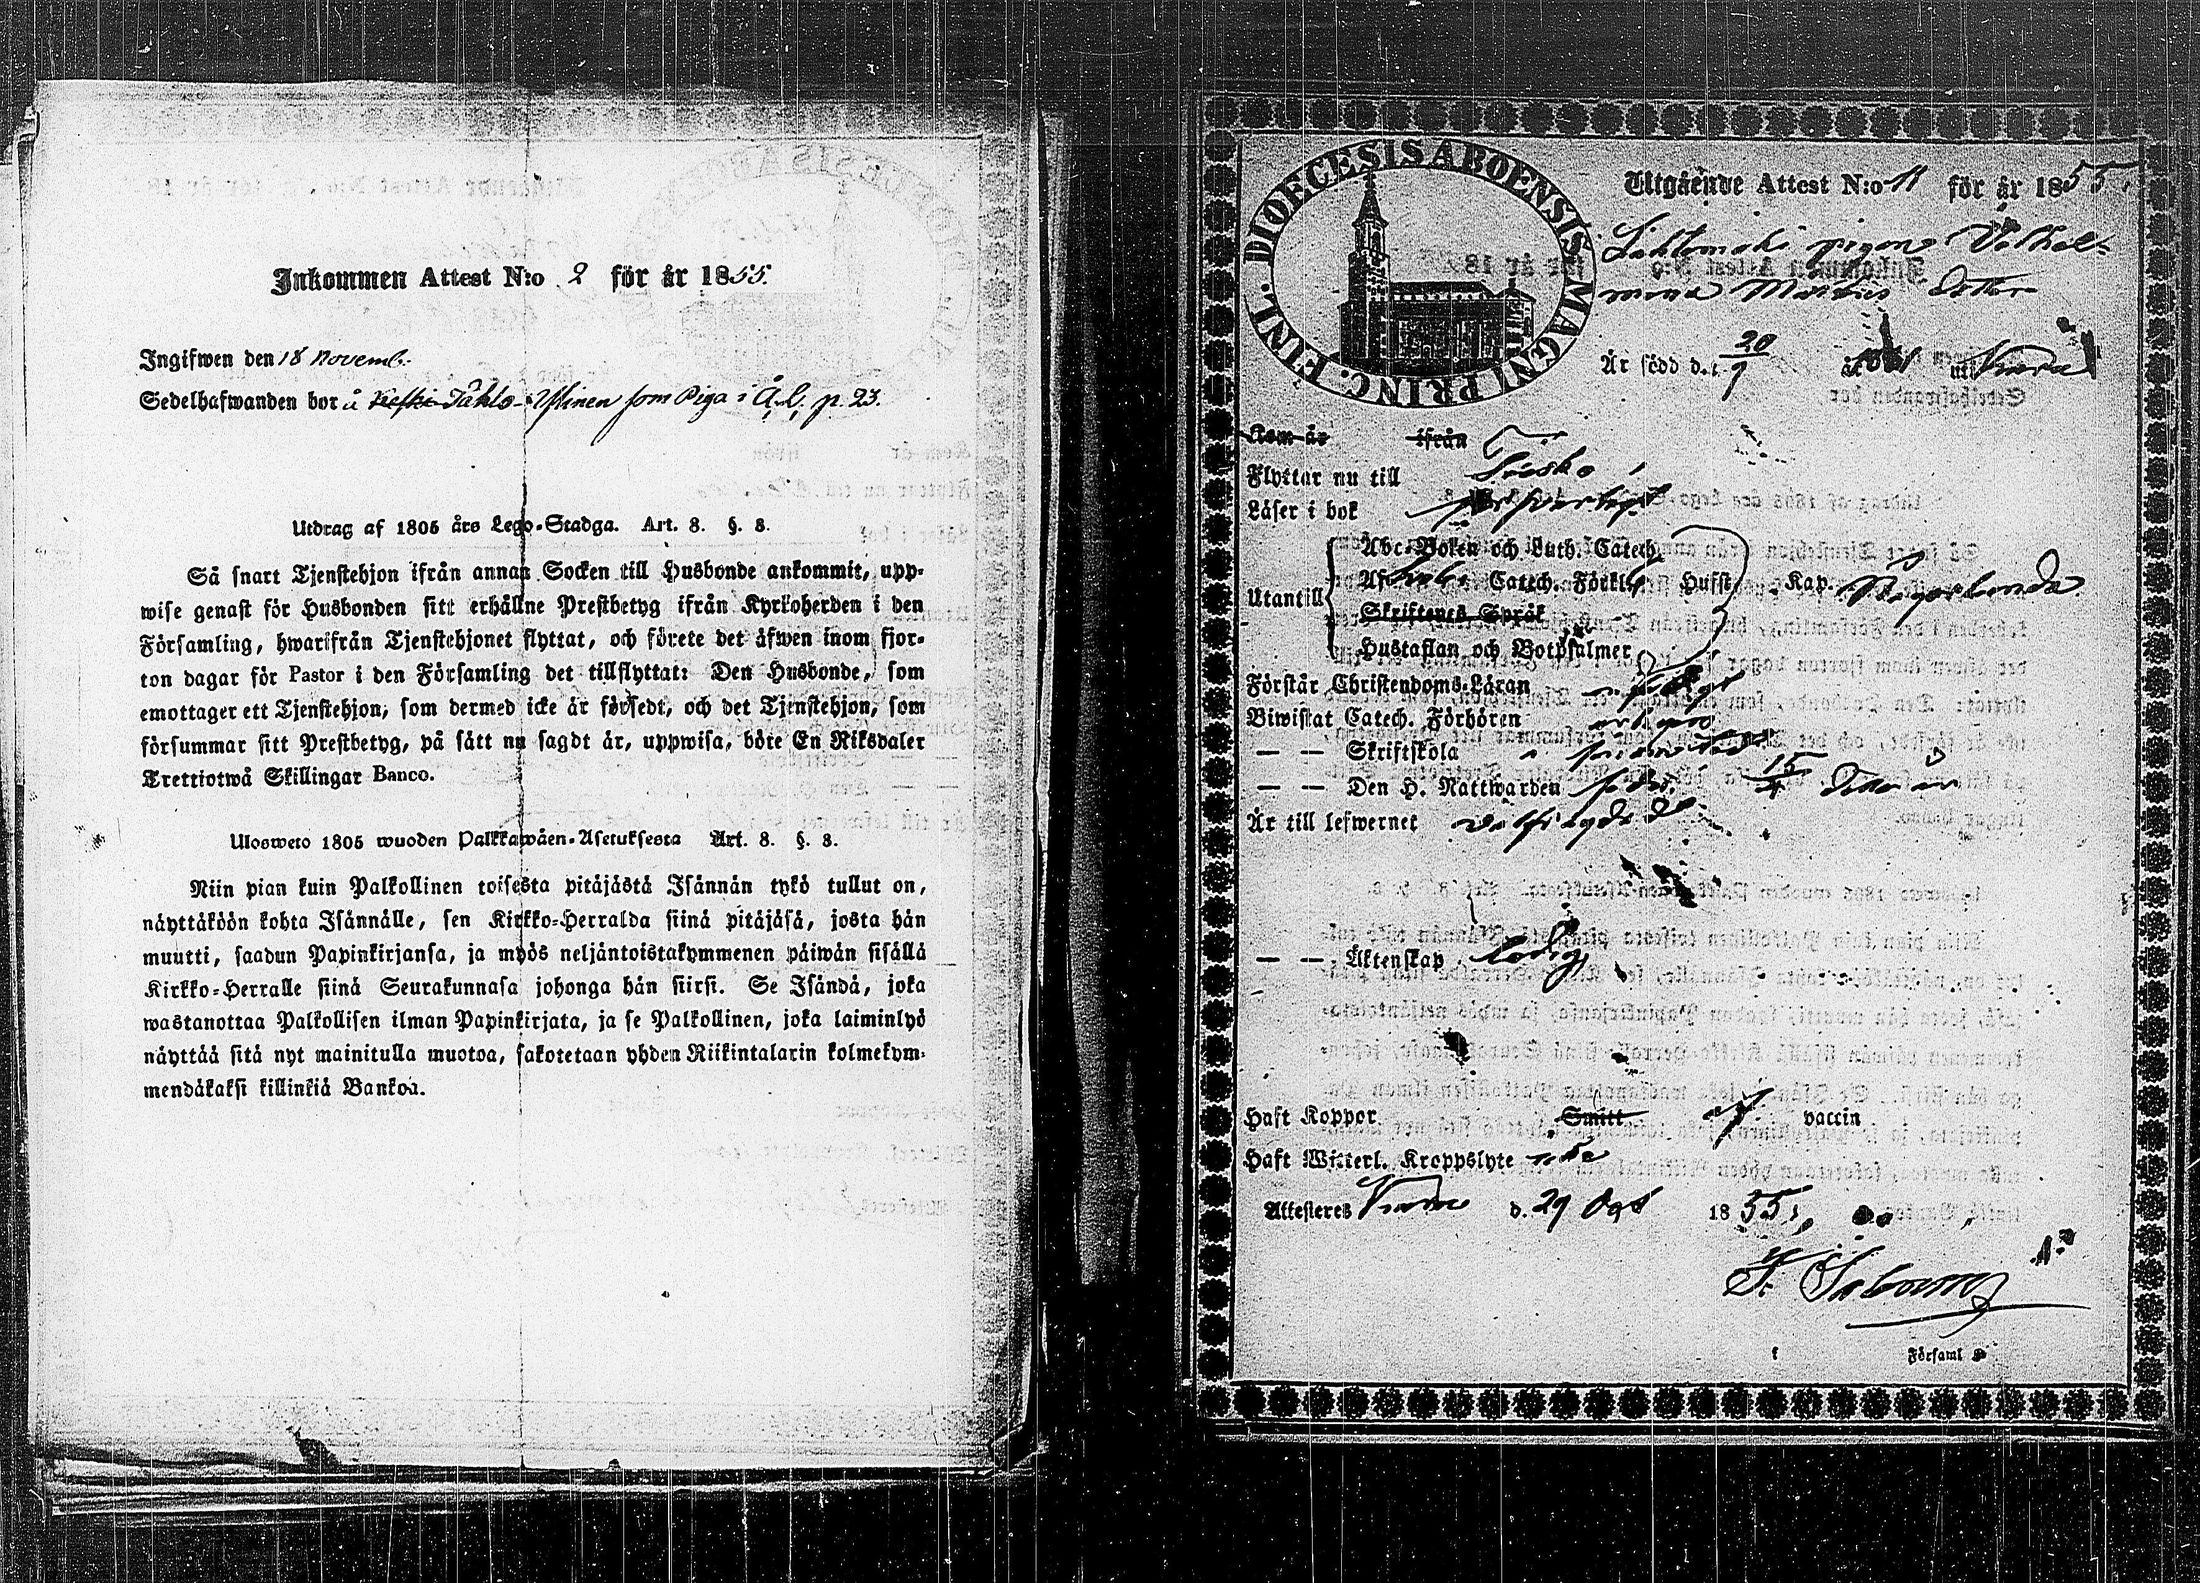 Inkommen Attest N:o 2 för år 1855.
Ingifwen den 18 Novemb.
Sedelhafwanden bor å Keski-Tahlo - Uslinen som Piga i Å. C. p. 23.
Utdrag af 1805 års Lego-Stadga. Art. 8. §. 8.
Så snart Tjenstehjon ifrån annan Socken till Husbonde ankommit, upp-
wise genast för Husbonden sitt erhållne Prestbetyg ifrån Kyrkoherden i den
Församling, hwarifrån Tjenstehjonet flyttat, och förete det äfwen inom fjor-
ton dagar för Pastor i den Församling det tillflyttat: Den Husbonde, som
emottager ett Tjenstehjon, som dermed icke är försedt, och det Tjenstehjon, som
försummar sitt Prestbetyg, på sätt nu sagdt är, uppwisa, böte En Riksdaler
Trettiotwå Skillingar Banco.
Ulosweto 1805 wuoden Palkkawäen-Asetuksesta Art. 8. §. 8.
Niin pian kuin Palkollinen toisesta pitäjästä Isännän tykö tullut on,
näyttäköön kohta Isännälle, sen Kirkko-Herralda siinä pitäjäsä, josta hän
muutti, saadun Papinkirjansa, ja myös neljäntoistakymmenen päiwän sisällä
Kirkko-Herralle siinä Seurakunnasa johonga hän siirsi. Se Isändä, joka
wastanottaa Palkollisen ilman Papinkirjata, ja se Palkollinen, joka laiminlyö
näyttää sitä nyt mainitulla muotoa, sakotetaan yhden Riikintalarin kolmekym-
mendäkaksi killinkiä Bankoa.
FINL. DIOECESIS ABOENSIS MAGNI PRINC.
Utgående Attest N:o 11 för år 1855.
pigan
dotter
Är född d. 20/9 uti
Kom är ifrån
Flyttar nu till
Läser i bok försvarligt
Abc-Boken och Luth. Catech.
Af Catech. Förkl. Hufst. Kap.
Utantill
Skriftenes Språk
Hustaflan och Botpsalmer
Förstår Christendoms-Läran
Biwistat Catech. Förhören
— — Skriftskola
— — Den H. Nattwarden 15/4
Är till lefwernet wälfrägdad
— — Äktenskap ledig
Haft Koppor Smitt af vaccin
Haft Witterl. Kroppslyte
Attesteres d. 29 1855
Församl